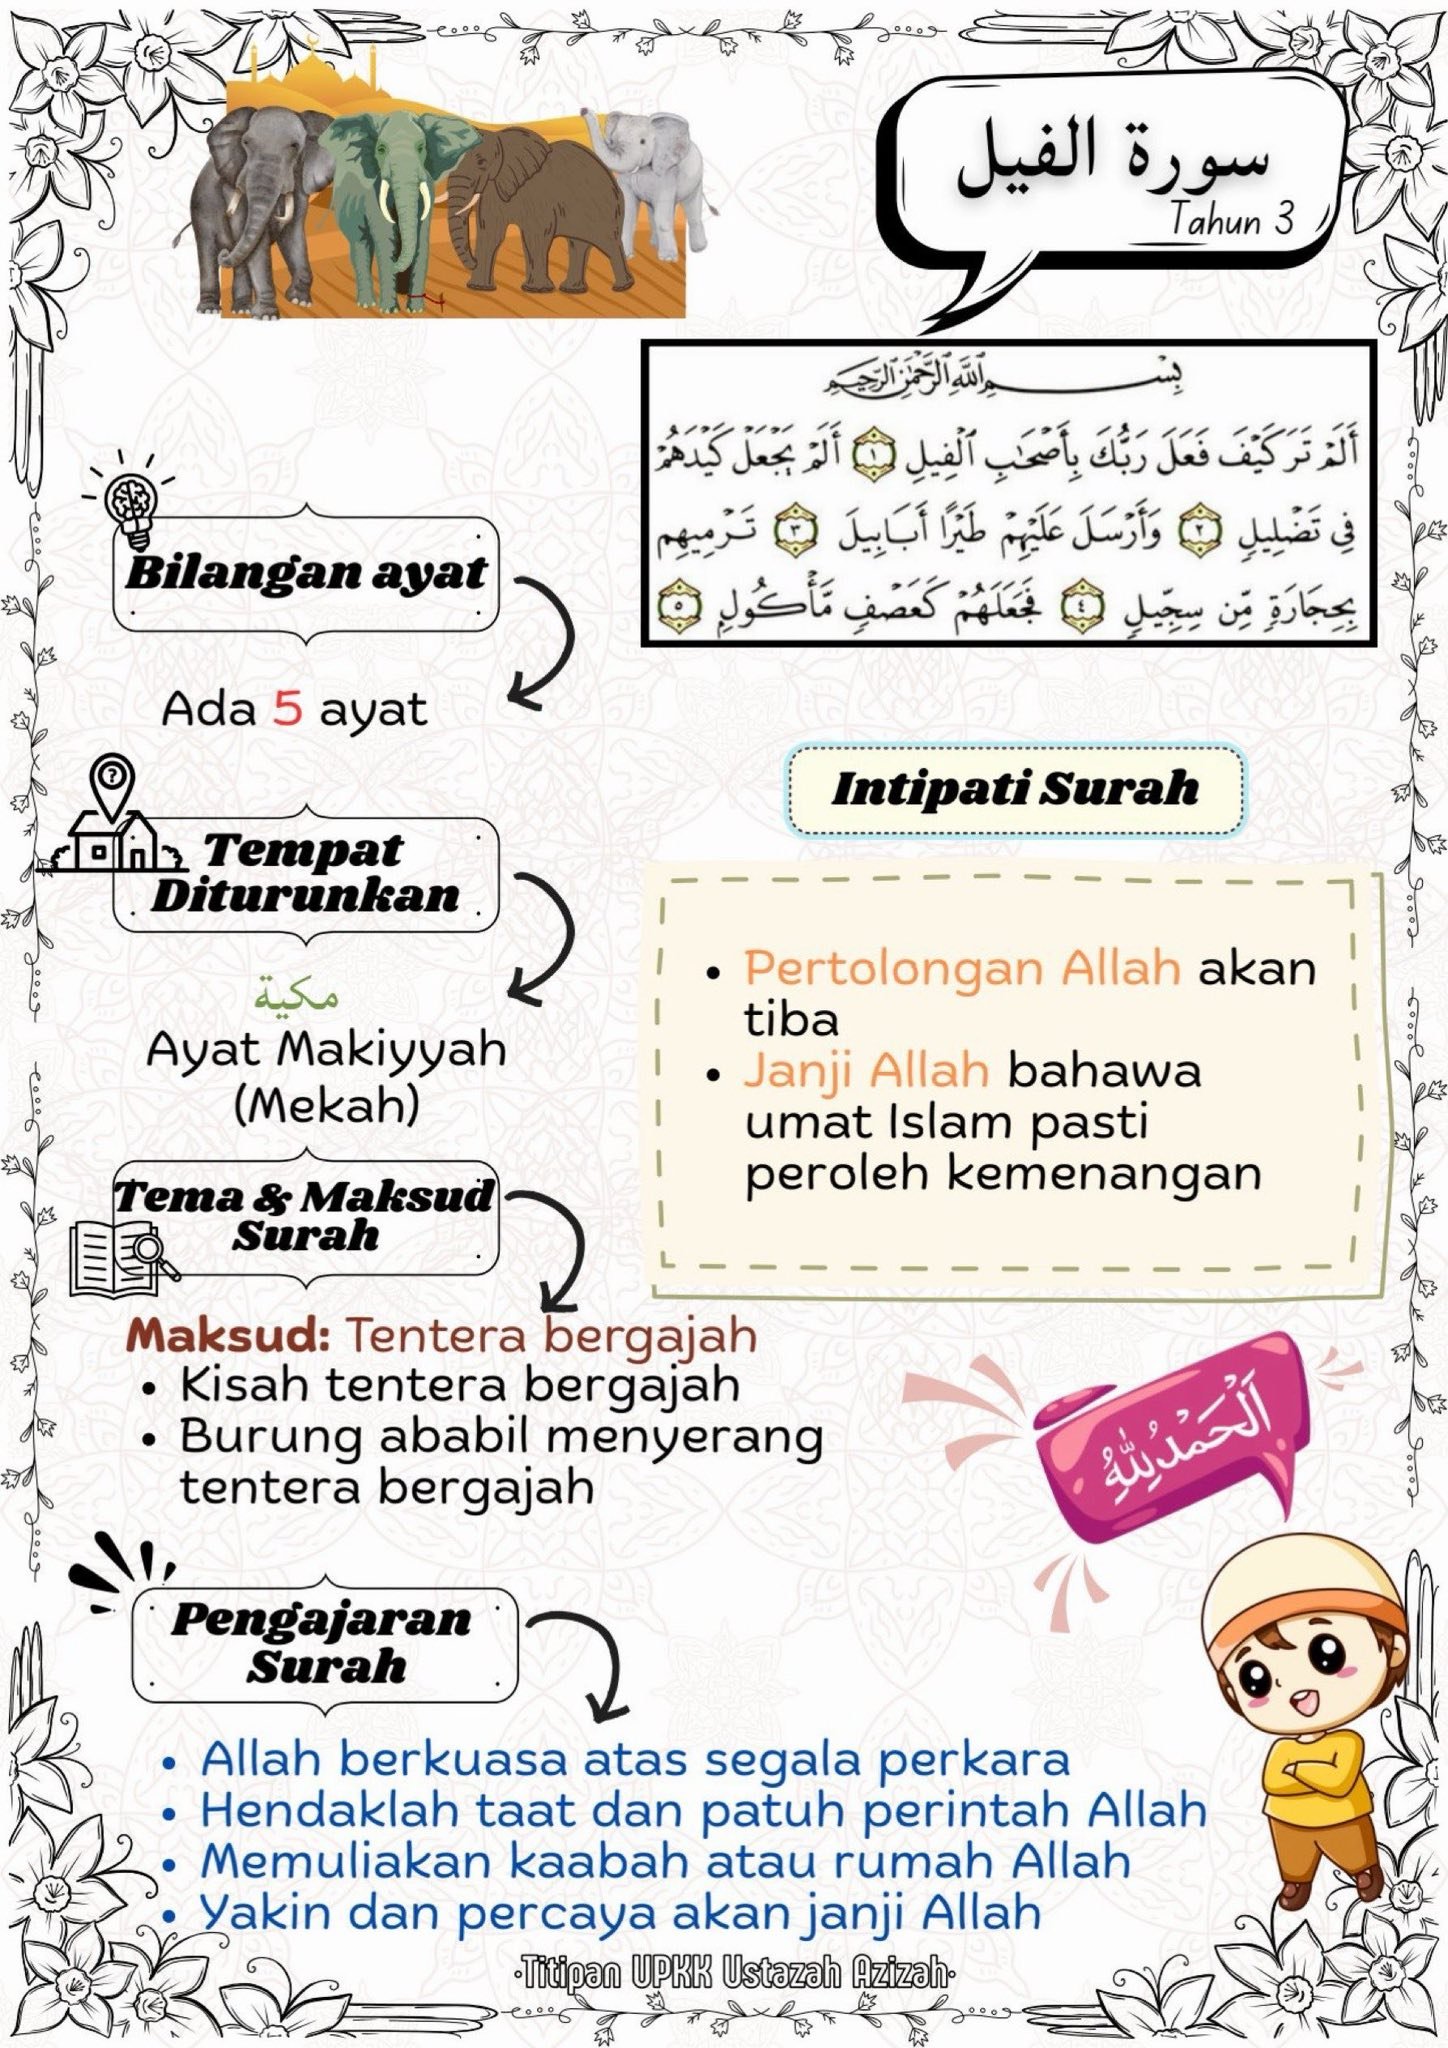 سورة الفيل
Tahun 3
بِسْمِ ٱللَّهِ ٱلرَّحْمَٰنِ ٱلرَّحِيمِ
أَلَمْ تَرَ كَيْفَ فَعَلَ رَبُّكَ بِأَصْحَٰبِ ٱلْفِيلِ ١ أَلَمْ يَجْعَلْ كَيْدَهُمْ
فِى تَضْلِيلٍ ٢ وَأَرْسَلَ عَلَيْهِمْ طَيْرًا أَبَابِيلَ ٣ تَرْمِيهِم
بِحِجَارَةٍ مِّن سِجِّيلٍ ٤ فَجَعَلَهُمْ كَعَصْفٍ مَّأْكُولٍ ٥
Bilangan ayat
Ada 5 ayat
Tempat
Diturunkan
مكية
Ayat Makiyyah
(Mekah)
Intipati Surah
• Pertolongan Allah akan
tiba
• Janji Allah bahawa
umat Islam pasti
peroleh kemenangan
Tema & Maksud
Surah
Maksud: Tentera bergajah
• Kisah tentera bergajah
• Burung ababil menyerang
tentera bergajah
اَلْحَمْدُ لِلّٰهِ
Pengajaran
Surah
• Allah berkuasa atas segala perkara
• Hendaklah taat dan patuh perintah Allah
• Memuliakan kaabah atau rumah Allah
• Yakin dan percaya akan janji Allah
•Titipan UPKK Ustazah Azizah•